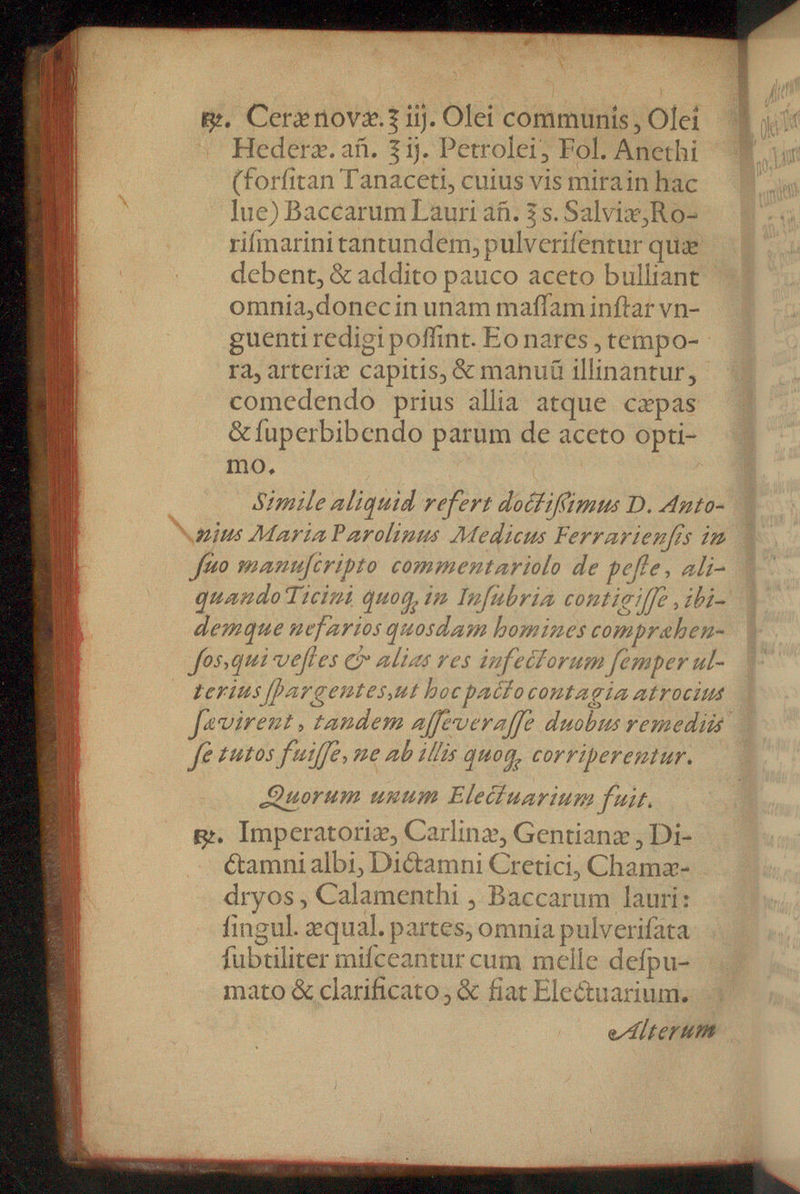 ℞. Ceræ novæ. ʒ iij. Olei communis, Olei
Hederæ. añ. ʒ ij. Petrolei, Fol. Anethi
(forſitan Tanaceti, cuius vis mira in hac
lue) Baccarum Lauri añ. ʒ s. Salviæ, Ro-
riſmarini tantundem, pulveriſentur quæ
debent, & addito pauco aceto bulliant
omnia, donec in unam maſſam inſtar vn-
guenti redigi poſſint. Eo nares, tempo-
ra, arteriæ capitis, & manuū illinantur,
comedendo prius allia atque cæpas
& ſuperbibendo parum de aceto opti-
mo.
Simile aliquid refert doctiſſimus D. Anto-
nius Maria Parolinus Medicus Ferrarienſis in
ſuo manuſcripto commentariolo de peſte, ali-
quando Ticini quoq, in Inſubria contigiſſe, ibi-
demque nefarios quosdam homines compræhen-
ſos, qui veſtes & alias res infectorum ſemper ul-
terius ſpargentes, ut hoc pacto contagia atrocius
ſævirent, tandem aſſeveraſſe duobus remediis
ſe tutos fuiſſe, ne ab illis quoq, corriperentur.
Quorum unum Electuarium fuit.
℞. Imperatoriæ, Carlinæ, Gentianæ, Di-
ctamni albi, Dictamni Cretici, Chamæ-
dryos, Calamenthi, Baccarum lauri:
ſingul. æqual. partes, omnia pulveriſata
ſubtiliter miſceantur cum melle deſpu-
mato & clarificato, & fiat Electuarium.
Alterum